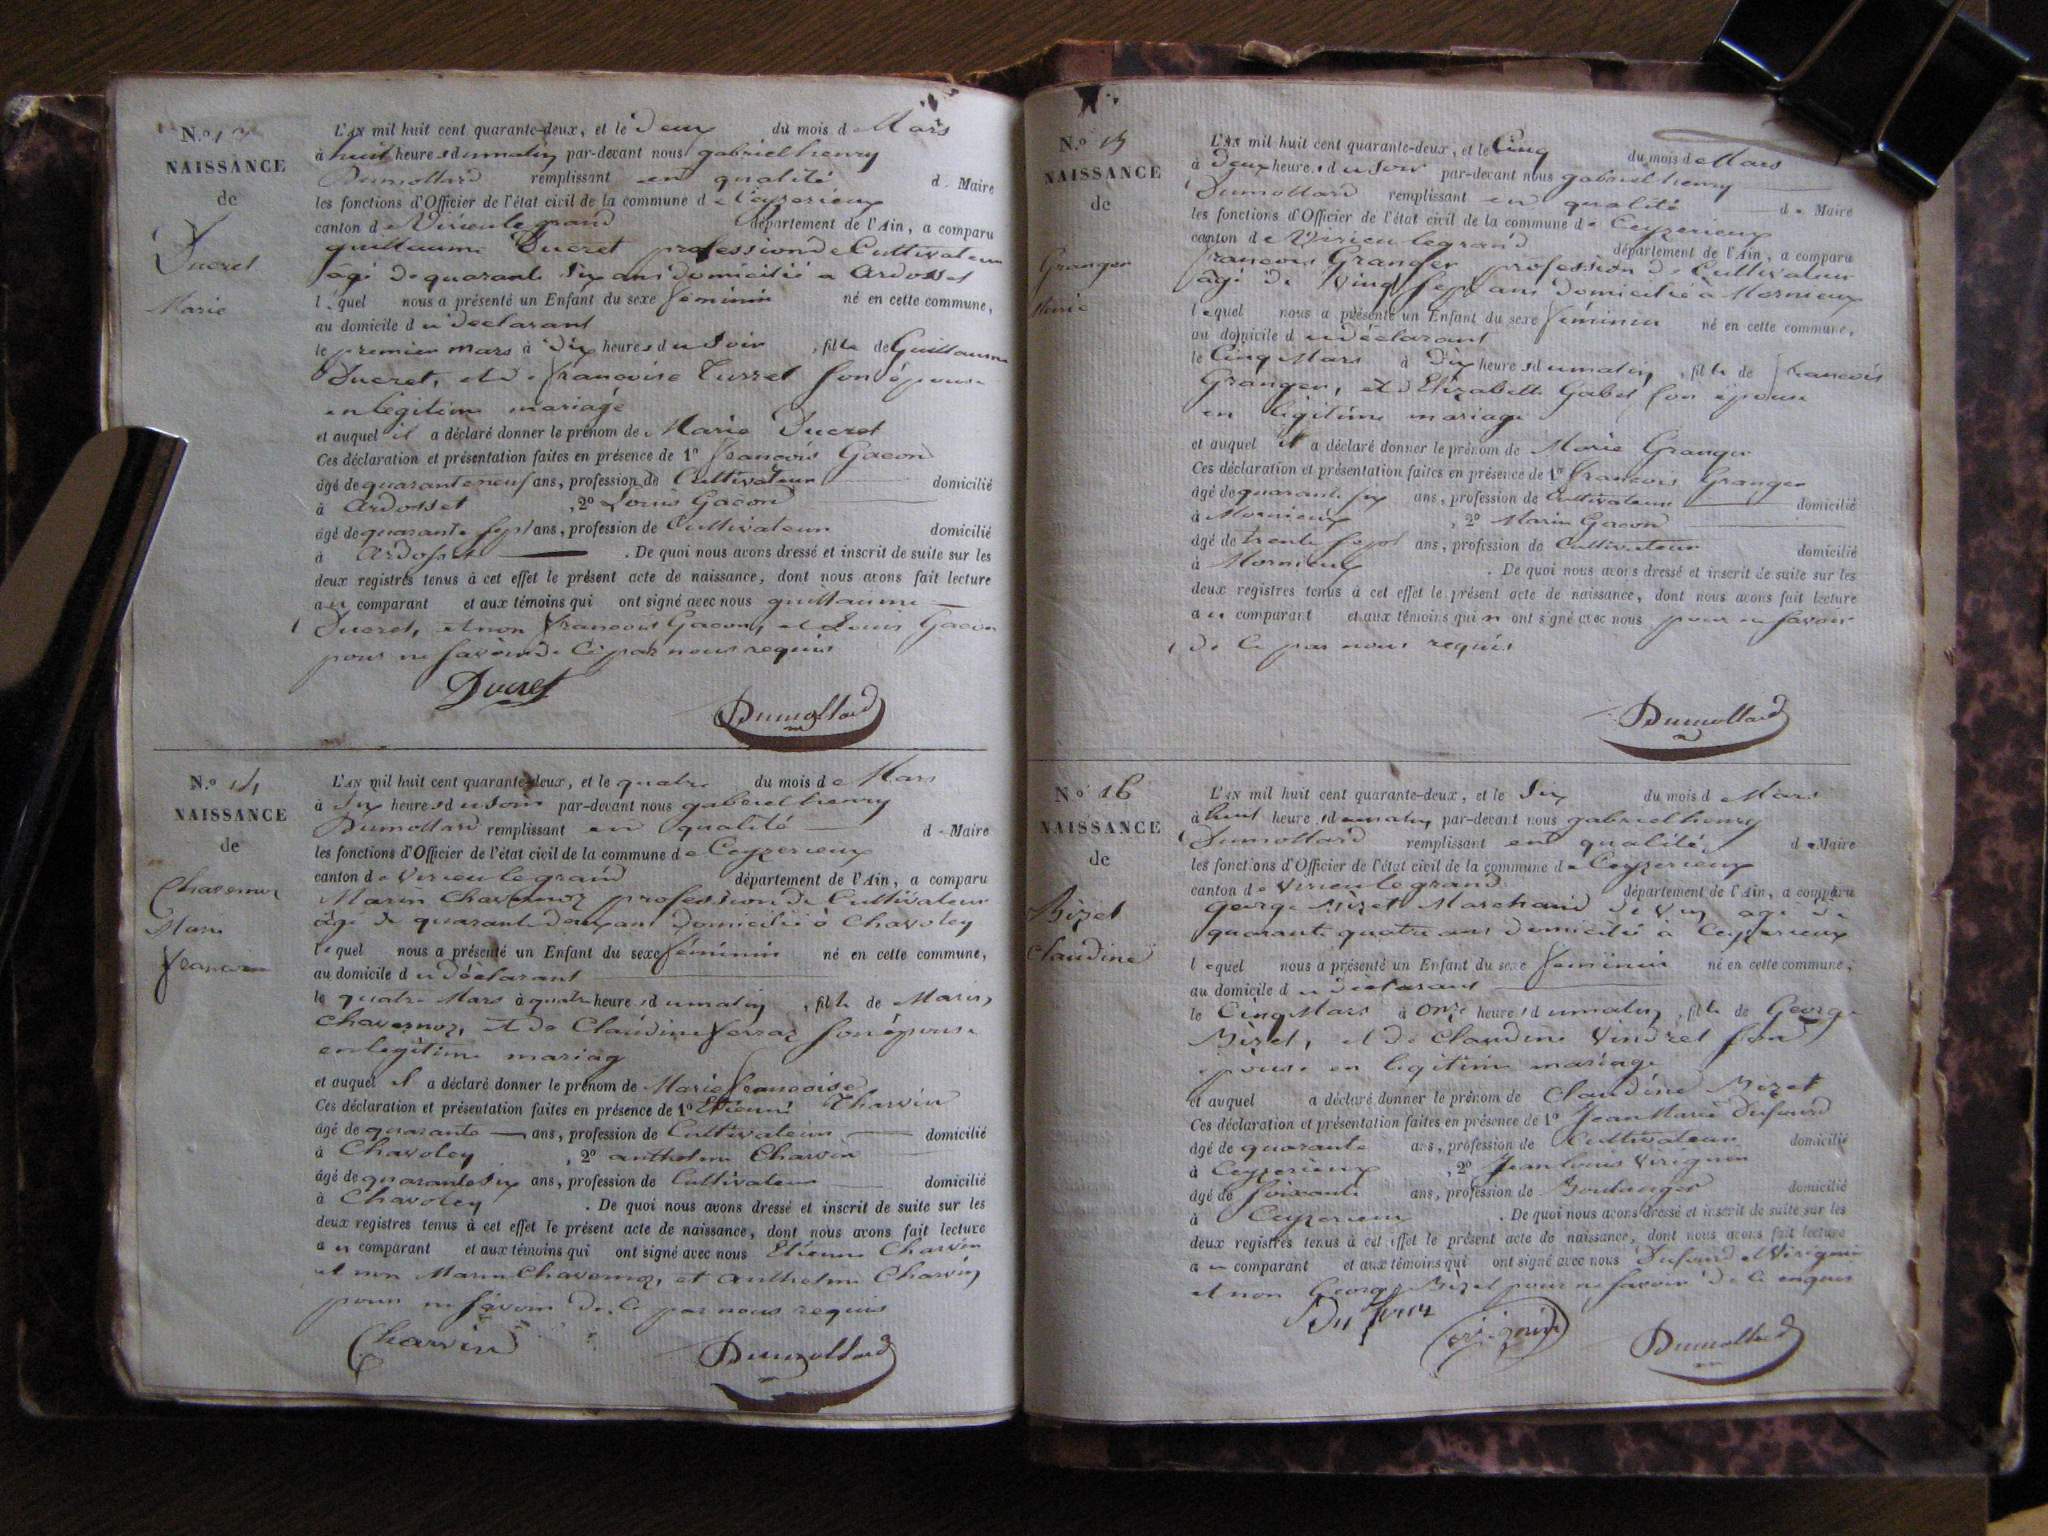 N.º 13
NAISSANCE
de
Ducret
Marie
L'AN mil huit cent quarante-deux, et le deux du mois de Mars
à huit heures du matin par-devant nous gabriel henry
Dumollard remplissant en qualité de Maire
les fonctions d'Officier de l'état civil de la commune de Ceyzerieux
canton de Virieu le grand département de l'Ain, a comparu
guillaume Ducret profession de Cultivateur
agé de quarante six ans domicilié a Ardosset
lequel nous a présenté un Enfant du sexe féminin né en cette commune,
au domicile du declarant
le premier mars à dix heures du soir, fille de Guillaume
Ducret, et de françoise Turret son épouse
en légitime mariage
et auquel il a déclaré donner le prénom de Marie Ducret
Ces déclaration et présentation faites en présence de 1º françois Gacon
âgé de quarante neuf ans, profession de Cultivateur domicilié
à Ardosset, 2º Louis Gacon
âgé de quarante sept ans, profession de Cultivateur domicilié
à Ardosset. De quoi nous avons dressé et inscrit de suite sur les
deux registres tenus à cet effet le présent acte de naissance, dont nous avons fait lecture
au comparant et aux témoins qui ont signé avec nous guillaume
Ducret, et non françois Gacon, et Louis Gacon
pour ne savoir de ce par nous requis
Ducret Dumollard
N.º 14
NAISSANCE
de
Chavornoz
Marie
françoise
L'AN mil huit cent quarante-deux, et le quatre du mois de Mars
à six heures du soir par-devant nous gabriel henry
Dumollard remplissant en qualité de Maire
les fonctions d'Officier de l'état civil de la commune de Ceyzerieux
canton de Virieu le grand département de l'Ain, a comparu
Marin Chavornoz profession de Cultivateur
âgé de quarante deux ans domicilié à Chavoley
lequel nous a présenté un Enfant du sexe féminin né en cette commune,
au domicile du déclarant
le quatre Mars à quatre heures du matin, fille de Marin
Chavornoz, et de Claudine ferraz son épouse
en légitime mariag
et auquel il a déclaré donner le prénom de Marie françoise
Ces déclaration et présentation faites en présence de 1º Etienne Charvin
âgé de quarante ans, profession de Cultivateur domicilié
à Chavoley, 2º anthelme Charvin
âgé de quarante six ans, profession de Cultivateur domicilié
à Chavoley. De quoi nous avons dressé et inscrit de suite sur les
deux registres tenus à cet effet le présent acte de naissance, dont nous avons fait lecture
au comparant et aux témoins qui ont signé avec nous Etienne Charvin
et non Marin Chavornoz, et Anthelme Charvin
pour ne savoir de ce par nous requis
Charvin Dumollard
N.º 15
NAISSANCE
de
Granger
Marie
L'AN mil huit cent quarante-deux, et le Cinq du mois de Mars
à deux heures du soir par-devant nous gabriel henry
Dumollard remplissant en qualité de Maire
les fonctions d'Officier de l'état civil de la commune de Ceyzerieux
canton de Virieu le grand département de l'Ain, a comparu
francois Granger profession de Cultivateur
âgé de vingt sept ans domicilié à Mornieux
lequel nous a présenté un Enfant du sexe féminin né en cette commune,
au domicile du déclarant
le Cinq Mars à Dix heures du matin, fille de francois
Granger, et d'Elizabeth Gabet son épouse
en légitime mariage
et auquel il a déclaré donner le prénom de Marie Granger
Ces déclaration et présentation faites en présence de 1º francois Granger
âgé de quarante six ans, profession de Cultivateur domicilié
à Mornieux, 2º Marin Gacon
âgé de trente sept ans, profession de Cultivateur domicilié
à Mornieux. De quoi nous avons dressé et inscrit de suite sur les
deux registres tenus à cet effet le présent acte de naissance, dont nous avons fait lecture
au comparant et aux témoins qui n ont signé avec nous pour ne savoir
de ce par nous requis
Dumollard
N.º 16
NAISSANCE
de
Bizet
Claudine
L'AN mil huit cent quarante-deux, et le Six du mois d Mars
à huit heures du matin, par-devant nous gabriel henry
Dumollard remplissant en qualité de Maire
les fonctions d'Officier de l'état civil de la commune de Ceyzerieux
canton de Virieu le grand département de l'Ain, a comparu
george Bizet Marchand de vin agé de
quarante quatre ans domicilié à Ceyzerieux
lequel nous a présenté un Enfant du sexe féminin né en cette commune,
au domicile du déclarant
le Cinq Mars à Onze heures du matin, fille de George
Bizet, et de Claudine Vindret son
épouse en légitime mariage
et auquel a déclaré donner le prénom de Claudine Bizet
Ces déclaration et présentation faites en présence de 1º Jean Marie Dufourd
âgé de quarante ans, profession de Cultivateur domicilié
à Ceyzerieux, 2º Jean louis Virignin
âgé de soixante ans, profession de Boulanger domicilié
à Ceyzerieux. De quoi nous avons dressé et inscrit de suite sur les
deux registres tenus à cet effet le présent acte de naissance, dont nous avons fait lecture
au comparant et aux témoins qui ont signé avec nous Dufourd et Virignin
et non George Bizet pour ne savoir de ce enquis
Dufour virignin Dumollard